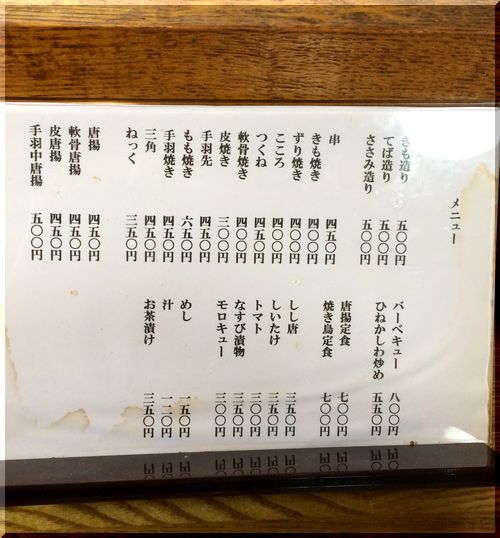 メニュー
きも造り 五〇〇円
てば造り 五〇〇円
ささみ造り 五〇〇円
串 四五〇円
きも焼き 四〇〇円
ずり焼き 四〇〇円
こころ 四〇〇円
つくね 四五〇円
軟骨焼き 四〇〇円
皮焼き 三〇〇円
手羽先 四五〇円
もも焼き 六五〇円
手羽焼き 四五〇円
三角 四五〇円
ねっく 三五〇円
唐揚 四五〇円
軟骨唐揚 四五〇円
皮唐揚 四五〇円
手羽中唐揚 五〇〇円
バーベキュー 八〇〇円
ひねかしわ炒め 五五〇円
唐揚定食 七〇〇円
焼き鳥定食 七〇〇円
しし唐 三五〇円
しいたけ 三五〇円
トマト 三〇〇円
なすび漬物 三五〇円
モロキュー 三〇〇円
めし 一五〇円
汁 一二〇円
お茶漬け 三五〇円